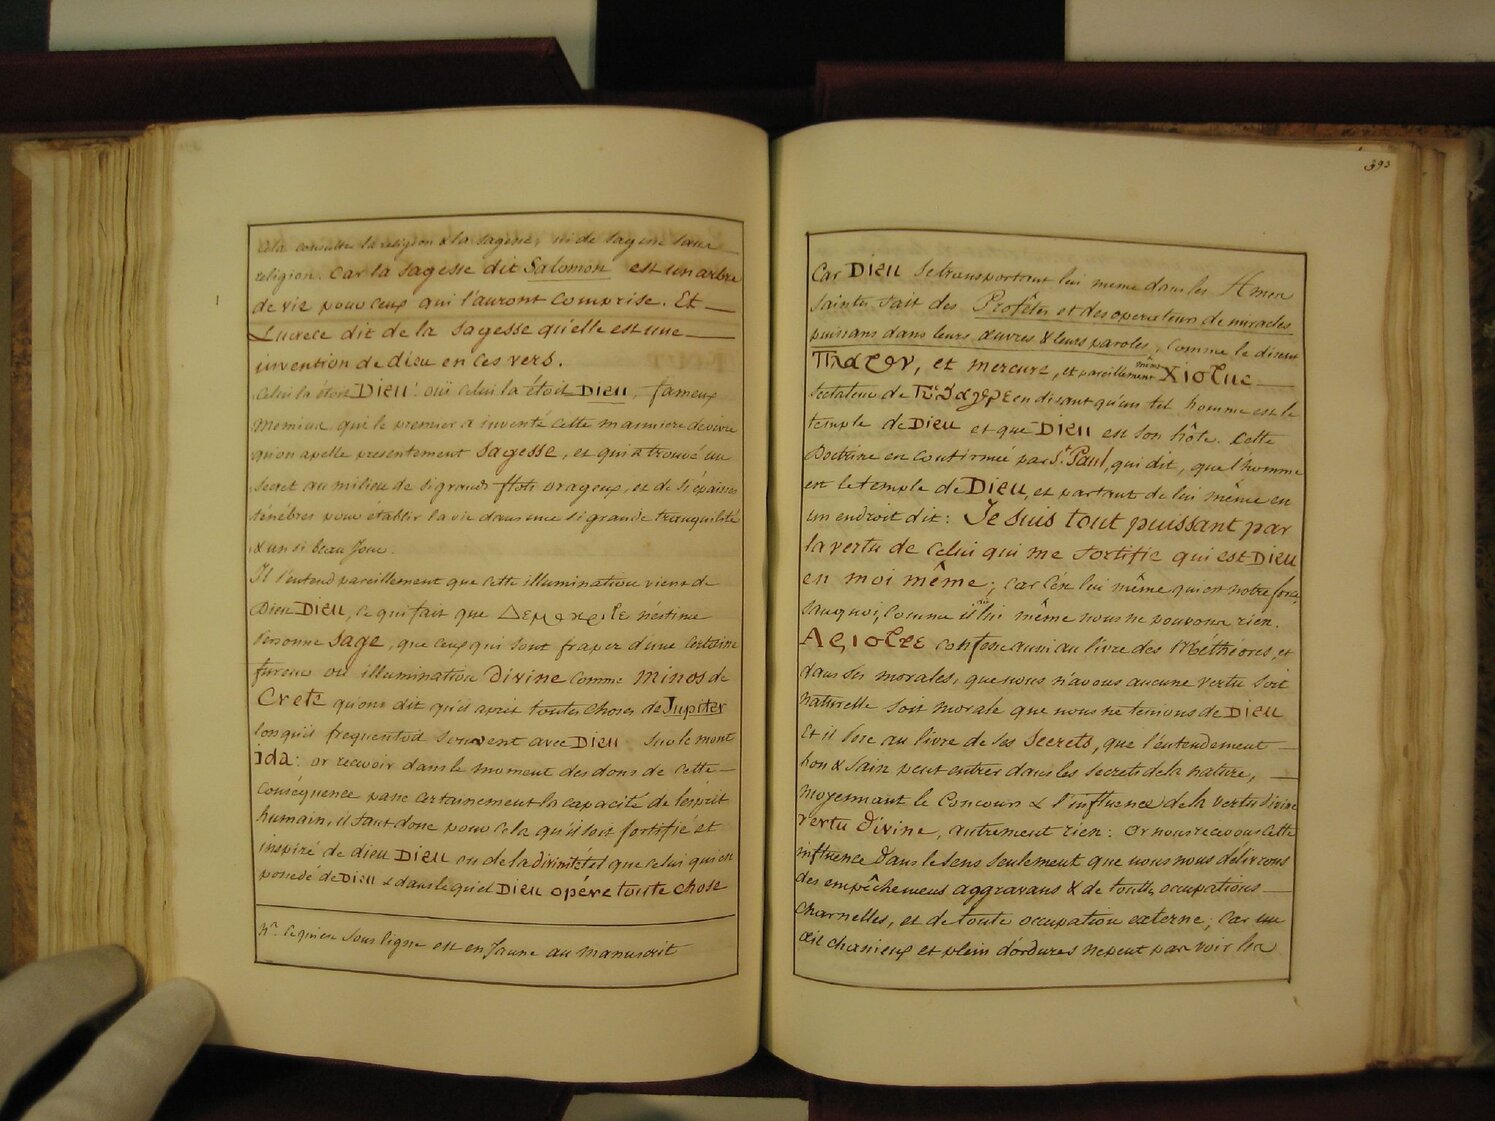 Cela consulter la religion & la sagesse, ni de sagesse sans
religion. Car la sagesse dit Salomon est un arbre
de vie pour ceux qui l'auront comprise. Et
Lucrece dit de la sagesse qu'elle est une
invention de dieu en ces vers.
Celui la étoit DIEU! oüi celui la étoit DIEU, fameux
Memieux qui le premier a inventé cette manniere de vivre
qu'on apelle presentement sagesse, et qui a trouvé un
secret au milieu de si grands flots orageux, et de si épaisses
ténébres pour établir la vie dans une si grande tranquilité
& un si beau jour.
Il l'entend pareillement que cette illumination vient de
Dieu DIEU, ce qui fait que Δεμοκριτε n'estime
personne sage, que ceux qui sont frapez d'une certaine
fureur ou illumination Divine comme Minos de
Crete qu'on dit qu'il aprit toutes choses de Jupiter
lorsqu'il frequentoit souvent avec DIEU sur le mont
ida: or recevoir dans le moment des dons de cette
conséquence passe certainement la capacité de l'esprit
humain, il faut donc pour cela qu'il soit fortifié et
inspiré de dieu DIEU ou de la divinité tel que celui qui est
possedé de DIEU & dans lequel DIEU opére toute chose
Nª. Ce qui est sous ligne est en Jaune au manuscrit
393
Car DIEU se transportant lui meme dans les Ames
saintes fait des Profêtes et des operateurs de miracles
puissans dans leurs œuvres & leurs paroles, comme le disent
et mercure, et pareillement même
sectateur de en disant qu'un tel homme est le
temple de DIEU et que DIEU est son hôte. Cette
Doctrine est confirmée par St. Paul, qui dit, que l'homme
est le temple de DIEU, et partant de lui même en
un endroit dit: Je suis tout puissant par
la vertu de celui qui me fortifie qui est DIEU
en moi même; car c'est lui même qui est notre force,
sans quoi, comme il dit lui même nous ne pouvons rien.
confesse aussi au livre des Méthéores, et
dans ses morales, que nous n'avons aucune vertu soit
naturelle soit morale que nous ne tenions de DIEU
et il dit au livre de ses Secrets, que l'entendement
bon & sain peut entrer dans les secrets de la nature,
moyennant le Concours & l'influence de la vertu divine
vertu Divine, autrement rien: Or nous recevons cette
influence dans le sens seulement que nous nous délivrons
des empêchemens aggravans & de toutte occupations
charnelles, et de toute occupation externe; car un
œil chassieux et plein d'ordures ne peut pas voir les